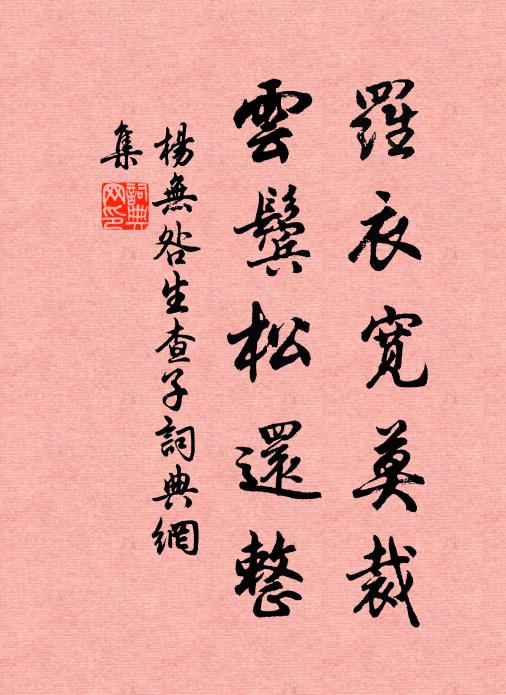 羅衣寬莫裁
雲鬢松還整
楊無咎生查子詞典網
集
詞典
网印